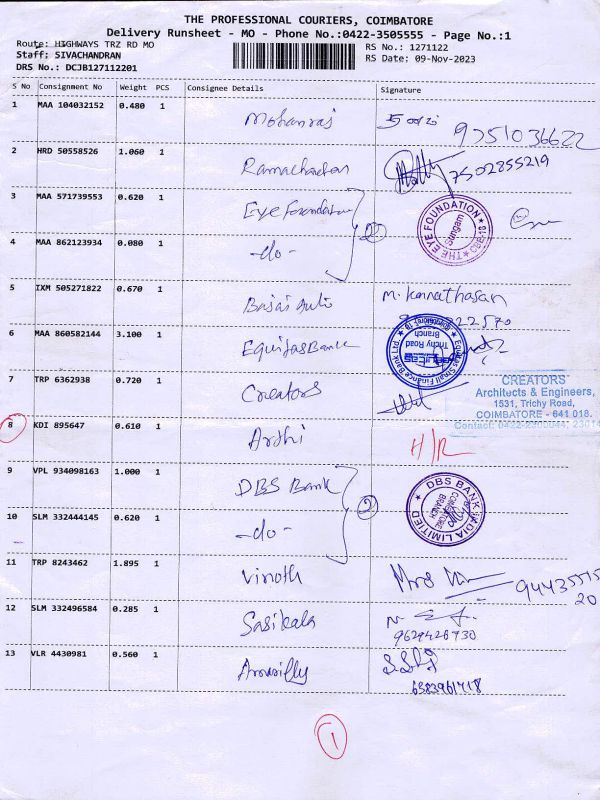 THE PROFESSIONAL COURIERS, COIMBATORE
Delivery Runsheet - MO - Phone No.:0422-3505555 - Page No.:1
Route: HIGHWAYS TRZ RD MO
RS No.: 1271122
Staff: SIVACHANDRAN
RS Date: 09-Nov-2023
DRS No.: DCJB127112201
S No Consignment No Weight PCS Consignee Details Signature
1 MAA 104032152 0.480 1 Mohanraj 9751036622
2 HRD 50558526 1.060 1 Ramachandran 7502855219
3 MAA 571739553 0.620 1 Eye Foundation
THE EYE FOUNDATION
Sungam
4 MAA 862123934 0.080 1 -do-
5 IXM 505271822 0.670 1 Bajaj Auto M. Kannathasan
6 MAA 860582144 3.100 1 Equitas Bank
Equitas Small Finance Bank Ltd
Trichy Road
Branch
7 TRP 6362938 0.720 1 Creators
CREATORS
Architects & Engineers,
1531, Trichy Road,
COIMBATORE - 641 018.
Contact: 0422-2300044, 23014
8 KDI 895647 0.610 1 Ardhi H/R
9 VPL 934098163 1.000 1 DBS Bank 2
DBS BANK INDIA LIMITED
COIMBATORE
BRANCH
10 SLM 332444145 0.620 1 -do-
11 TRP 8243462 1.895 1 Vinoth 94435515
20
12 SLM 332496584 0.285 1 Sasikala
9629428730
13 VLR 4430981 0.560 1
6383961718
1